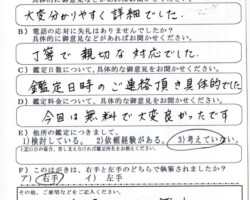 大変分かりやすく詳細でした。
B）電話の応対に失礼はありませんでしたか？
具体的に御意見などがあればお聞かせください。
丁寧で親切な対応でした。
C）鑑定日数について、具体的な御意見をお聞かせください。
鑑定日時のご連絡頂き具体的でした
D）鑑定料金について、具体的な御意見をお聞かせください。
今回は無料で大変良かったです
E）他所の鑑定につきまして、
1)検討している。 2)依頼経験がある。 3)考えていない
F）このはがきは、右手と左手のどちらで執筆されましたか？
ア）右手 イ）左手
その他、ご要望などをご記入ください。